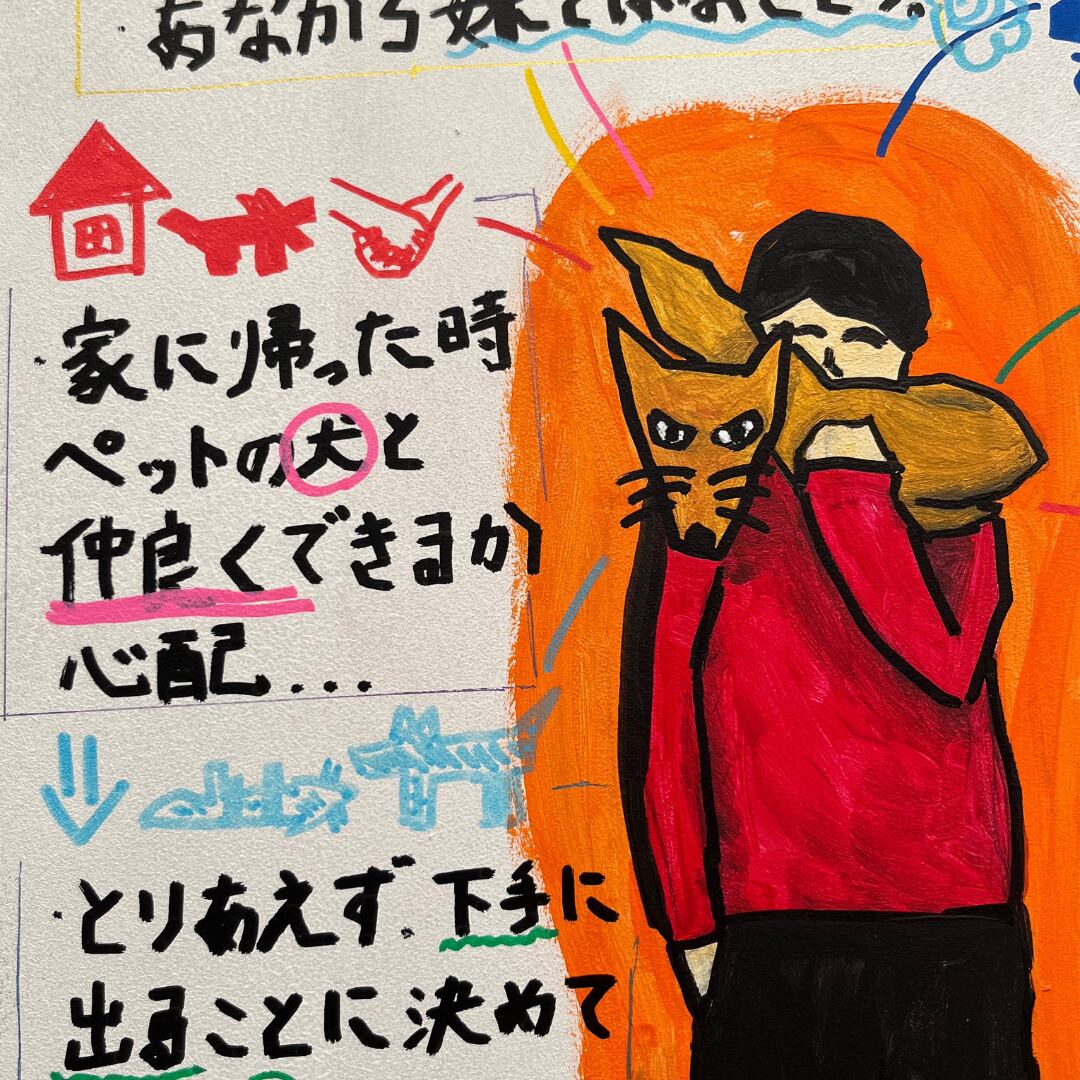 あながち嫌ではなさそう。
・家に帰った時
ペットの犬と
仲良くできるか
心配...
・とりあえず、下手に
出ることに決めて